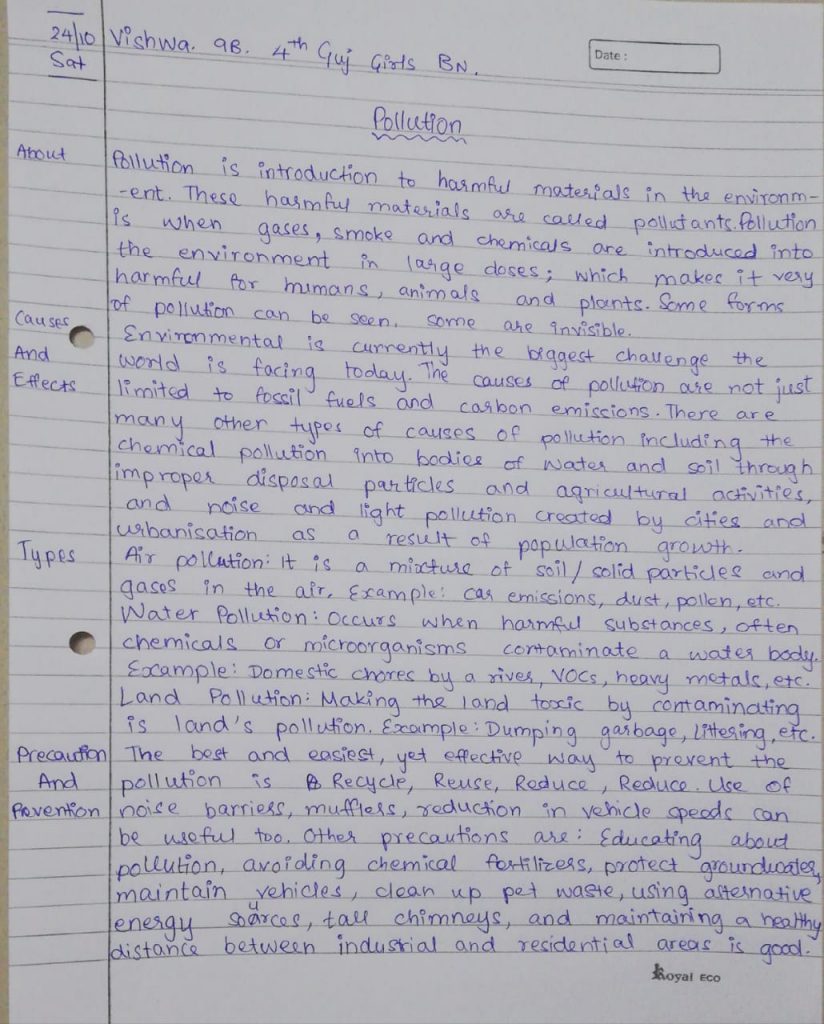 24/10 Vishwa. 9B. 4th Guj Girls BN.
Sat
Date :
Pollution
About Pollution is introduction to harmful materials in the environm-
-ent. These harmful materials are called pollutants. Pollution
is when gases, smoke and chemicals are introduced into
the environment in large doses; which makes it very
harmful for humans, animals and plants. Some forms
of pollution can be seen, some are invisible.
Causes Environmental is currently the biggest challenge the
And world is facing today. The causes of pollution are not just
Effects limited to fossil fuels and carbon emissions. There are
many other types of causes of pollution including the
chemical pollution into bodies of water and soil through
improper disposal particles and agricultural activities,
and noise and light pollution created by cities and
urbanisation as a result of population growth.
Types Air pollution: It is a mixture of soil/solid particles and
gases in the air. Example: car emissions, dust, pollen, etc.
Water Pollution: Occurs when harmful substances, often
chemicals or microorganisms contaminate a water body.
Example: Domestic chores by a river, VOCs, heavy metals, etc.
Land Pollution: Making the land toxic by contaminating
is land's pollution. Example: Dumping garbage, littering, etc.
Precaution The best and easiest, yet effective way to prevent the
And pollution is Recycle, Reuse, Reduce, Reduce. Use of
Prevention noise barriers, mufflers, reduction in vehicle speeds can
be useful too. Other precautions are: Educating about
pollution, avoiding chemical fertilizers, protect groundwater,
maintain vehicles, clean up pet waste, using alternative
energy sources, tall chimneys, and maintaining a healthy
distance between industrial and residential areas is good.
Royal ECO